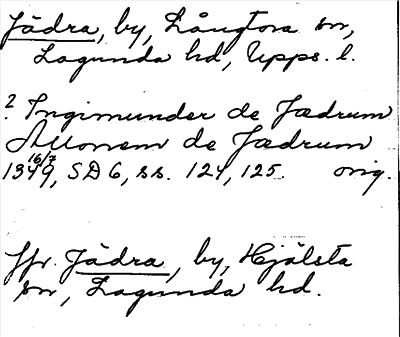 Jädra, by, Långtora sn,
Lagunda hd, Upps. l.
? Ingimunder de Jædrum
Allonem de Jædrum
16/7
1349, SD 6, ss. 124, 125. orig.
Jfr. Jädra, by, Hjälsta
sn, Lagunda hd.